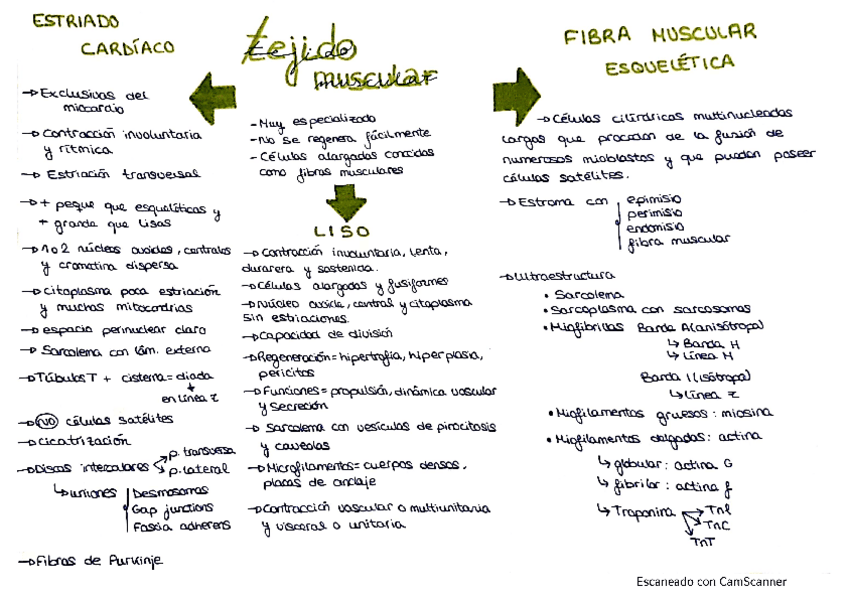 ESTRIADO
CARDÍACO
→ Exclusivas del
miocardio
→ Contracción involuntaria
y rítmica
→ Estriación transversal
→ + peque que esqueléticas y
+ grande que lisas
→ 1 o 2 núcleos ovoides, centrales
y cromatina dispersa
→ citoplasma poca estriación
y muchas mitocondrias
→ espacio perinuclear claro
→ Sarcolema con lám. externa
→ Túbulos T + cisterna = diada
en línea Z
→ NO células satélites
→ cicatrización
→ Discos intercalares
p. transversa
p. lateral
↳ uniones
Desmosomas
Gap junctions
Fascia adherens
→ Fibras de Purkinje
tejido
muscular
- Muy especializado
- No se regenera fácilmente
- Células alargadas conocidas
como fibras musculares
LISO
→ Contracción involuntaria, lenta,
duradera y sostenida.
→ Células alargadas y fusiformes
→ Núcleo ovoide, central y citoplasma
sin estriaciones.
→ Capacidad de división
→ Regeneración = hipertrofia, hiperplasia,
pericitos
→ Funciones = propulsión, dinámica vascular
y secreción
→ Sarcolema con vesículas de pinocitosis
y caveolas
→ Microfilamentos = cuerpos densos,
placas de anclaje
→ Contracción vascular o multiunitaria
y visceral o unitaria
FIBRA MUSCULAR
ESQUELÉTICA
→ Células cilíndricas multinucleadas
largas que proceden de la fusión de
numerosos mioblastos y que pueden poseer
células satélites.
→ Estroma con
epimisio
perimisio
endomisio
fibra muscular
→ Ultraestructura
• Sarcolema
• Sarcoplasma con sarcosomas
• Miofibrillas Banda A (anisótropa)
↳ Banda H
↳ Línea M
Banda I (isótropa)
↳ Línea Z
• Miofilamentos gruesos: miosina
• Miofilamentos delgados: actina
↳ globular: actina G
↳ fibrilar: actina f
↳ Troponina
TnI
TnC
TnT
Escaneado con CamScanner